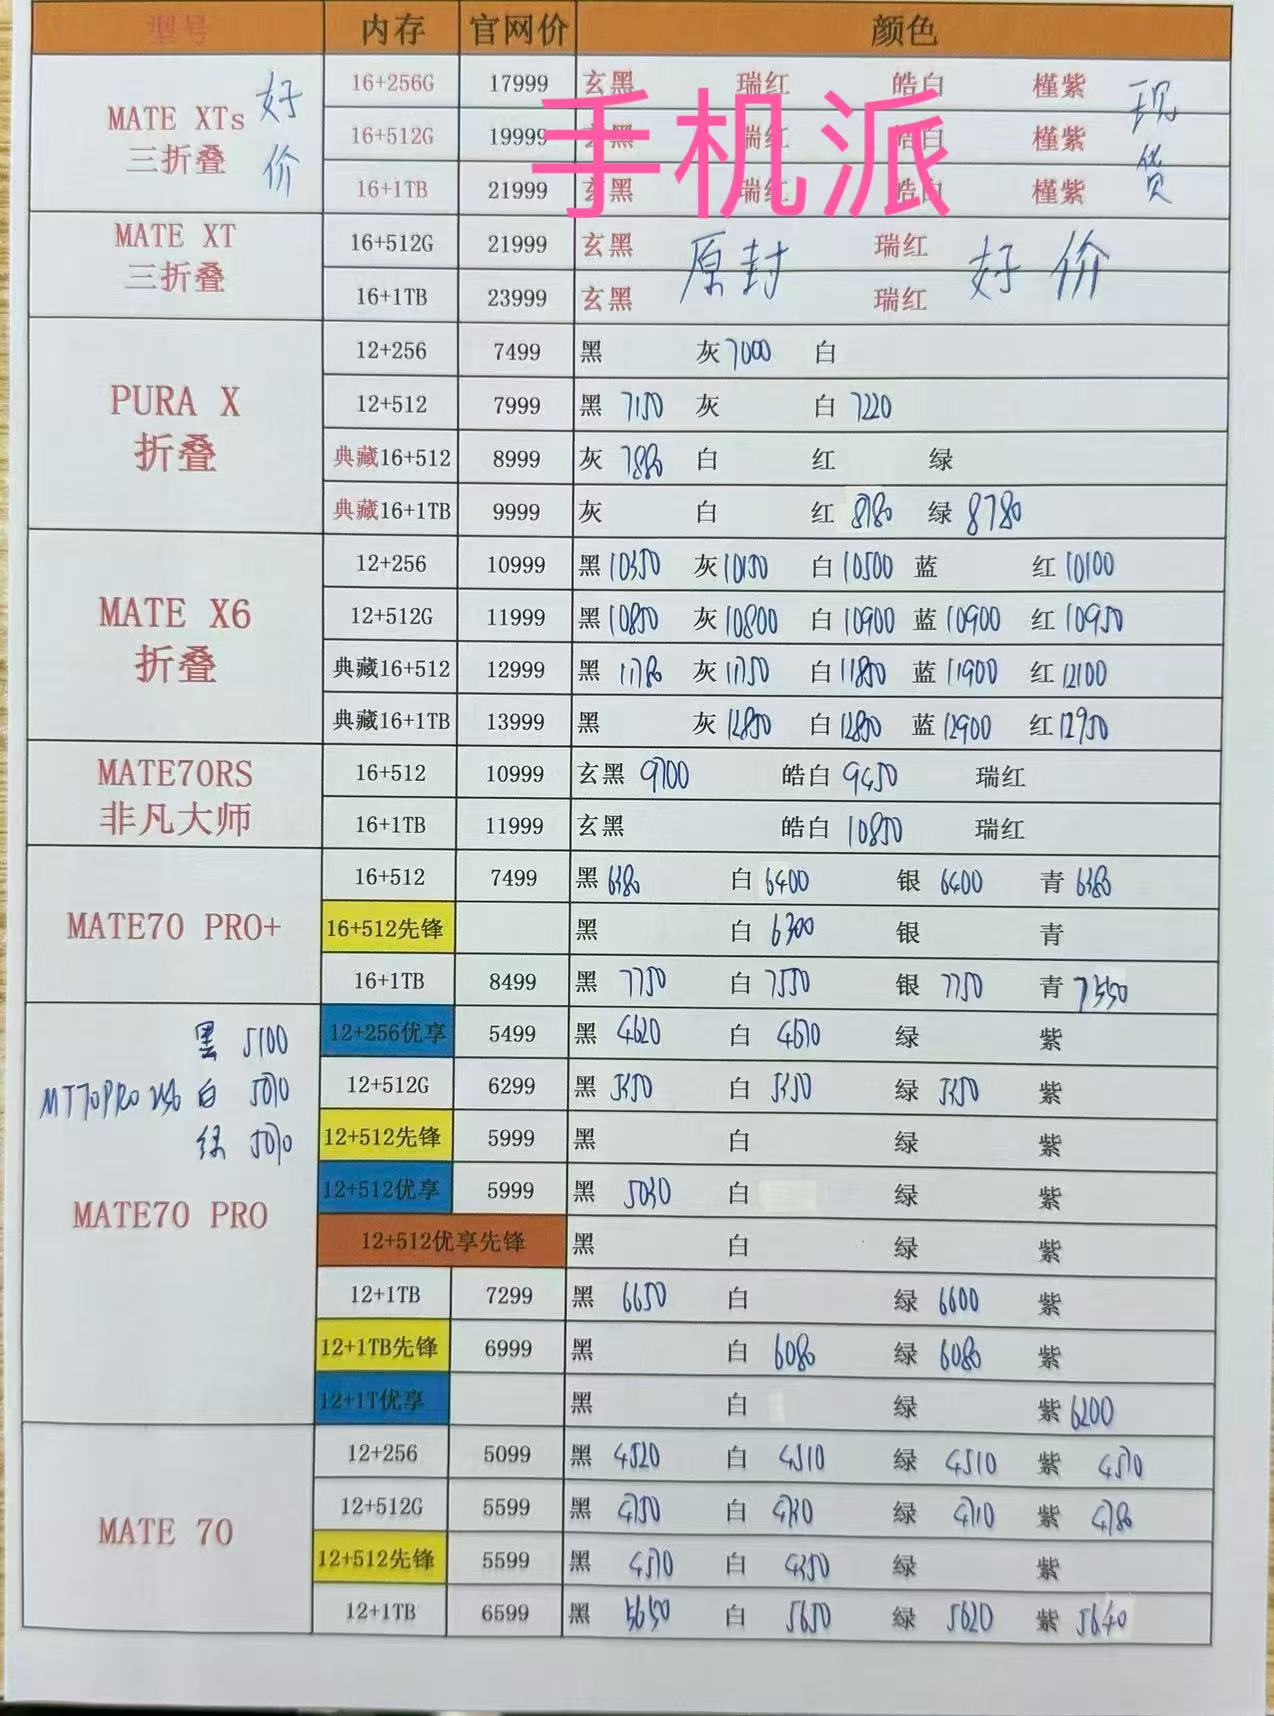 型号 内存 官网价 颜色
手机派
MATE XTs 三折叠 好价 现货
16+256G 17999 玄黑 瑞红 皓白 槿紫
16+512G 19999 玄黑 瑞红 皓白 槿紫
16+1TB 21999 玄黑 瑞红 皓白 槿紫
MATE XT 三折叠 原封 好价
16+512G 21999 玄黑 瑞红
16+1TB 23999 玄黑 瑞红
PURA X 折叠
12+256 7499 黑 灰 7000 白
12+512 7999 黑 7150 灰 白 7220
典藏16+512 8999 灰 7880 白 红 绿
典藏16+1TB 9999 灰 白 红 8780 绿 8780
MATE X6 折叠
12+256 10999 黑 灰 白 10500 蓝 红 10100
12+512G 11999 黑 10850 灰 10800 白 10900 蓝 10900 红 10950
典藏16+512 12999 黑 11780 灰 11750 白 11850 蓝 11900 红 12100
典藏16+1TB 13999 黑 灰 12850 白 12850 蓝 12900 红 12950
MATE70RS 非凡大师
16+512 10999 玄黑 9700 皓白 9450 瑞红
16+1TB 11999 玄黑 皓白 10850 瑞红
MATE70 PRO+
16+512 7499 黑 6380 白 6400 银 6400 青 6380
16+512先锋 黑 白 6300 银 青
16+1TB 8499 黑 7750 白 7550 银 7750 青 7550
黑 5100
MT70PRO 256 白 5070
绿 5070
MATE70 PRO
12+256优享 5499 黑 4620 白 4670 绿 紫
12+512G 6299 黑 白 绿 紫
12+512先锋 5999 黑 白 绿 紫
12+512优享 5999 黑 白 绿 紫
12+512优享先锋 黑 白 绿 紫
12+1TB 7299 黑 6650 白 绿 6600 紫
12+1TB先锋 6999 黑 白 6080 绿 6080 紫
12+1T优享 黑 白 绿 紫 6200
MATE 70
12+256 5099 黑 4520 白 4510 绿 4510 紫 4570
12+512G 5599 黑 4750 白 绿 4710 紫 4780
12+512先锋 5599 黑 4570 白 绿 紫
12+1TB 6599 黑 5650 白 5650 绿 5620 紫 5640